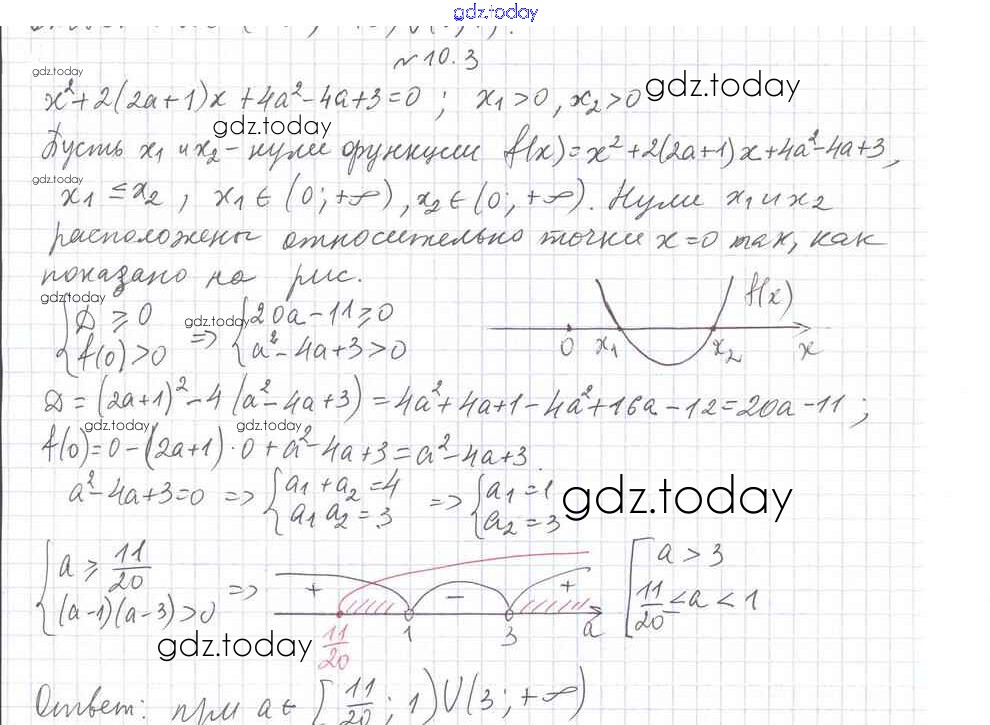 gdz.today
№10.3
gdz.today
x²+2(2a+1)x+4a²-4a+3=0; x₁>0, x₂>0
gdz.today
gdz.today
Пусть x₁ и x₂ - нули функции f(x)=x²+2(2a+1)x+4a²-4a+3,
gdz.today
x₁≤x₂, x₁∈(0;+∞), x₂∈(0;+∞). Нули x₁ и x₂
расположены относительно точки x=0 так, как
показано на рис.
gdz.today
{D≥0
f(0)>0 => {20a-11≥0
a²-4a+3>0
gdz.today
f(x)
0 x₁ x₂ x
D=(2a+1)²-4(a²-4a+3)=4a²+4a+1-4a²+16a-12=20a-11;
gdz.today gdz.today
f(0)=0-(2a+1)·0+a²-4a+3=a²-4a+3.
a²-4a+3=0 => {a₁+a₂=4
a₁a₂=3 => {a₁=1
a₂=3
gdz.today
{a≥11/20
(a-1)(a-3)>0 =>
+ - +
11/20 1 3 a
[a>3
11/20≤a<1
gdz.today
Ответ: при a∈[11/20;1)∪(3;+∞)